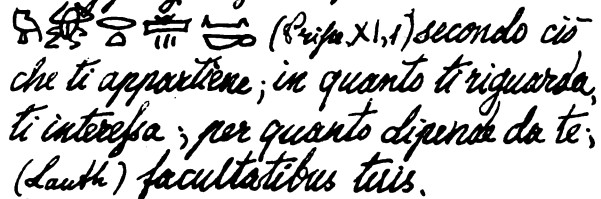 (Prisse, XI, 1) secondo ciò
che ti appartiene; in quanto ti riguarda,
ti interessa; per quanto dipende da te;
(Lauth) facultatibus tuis.